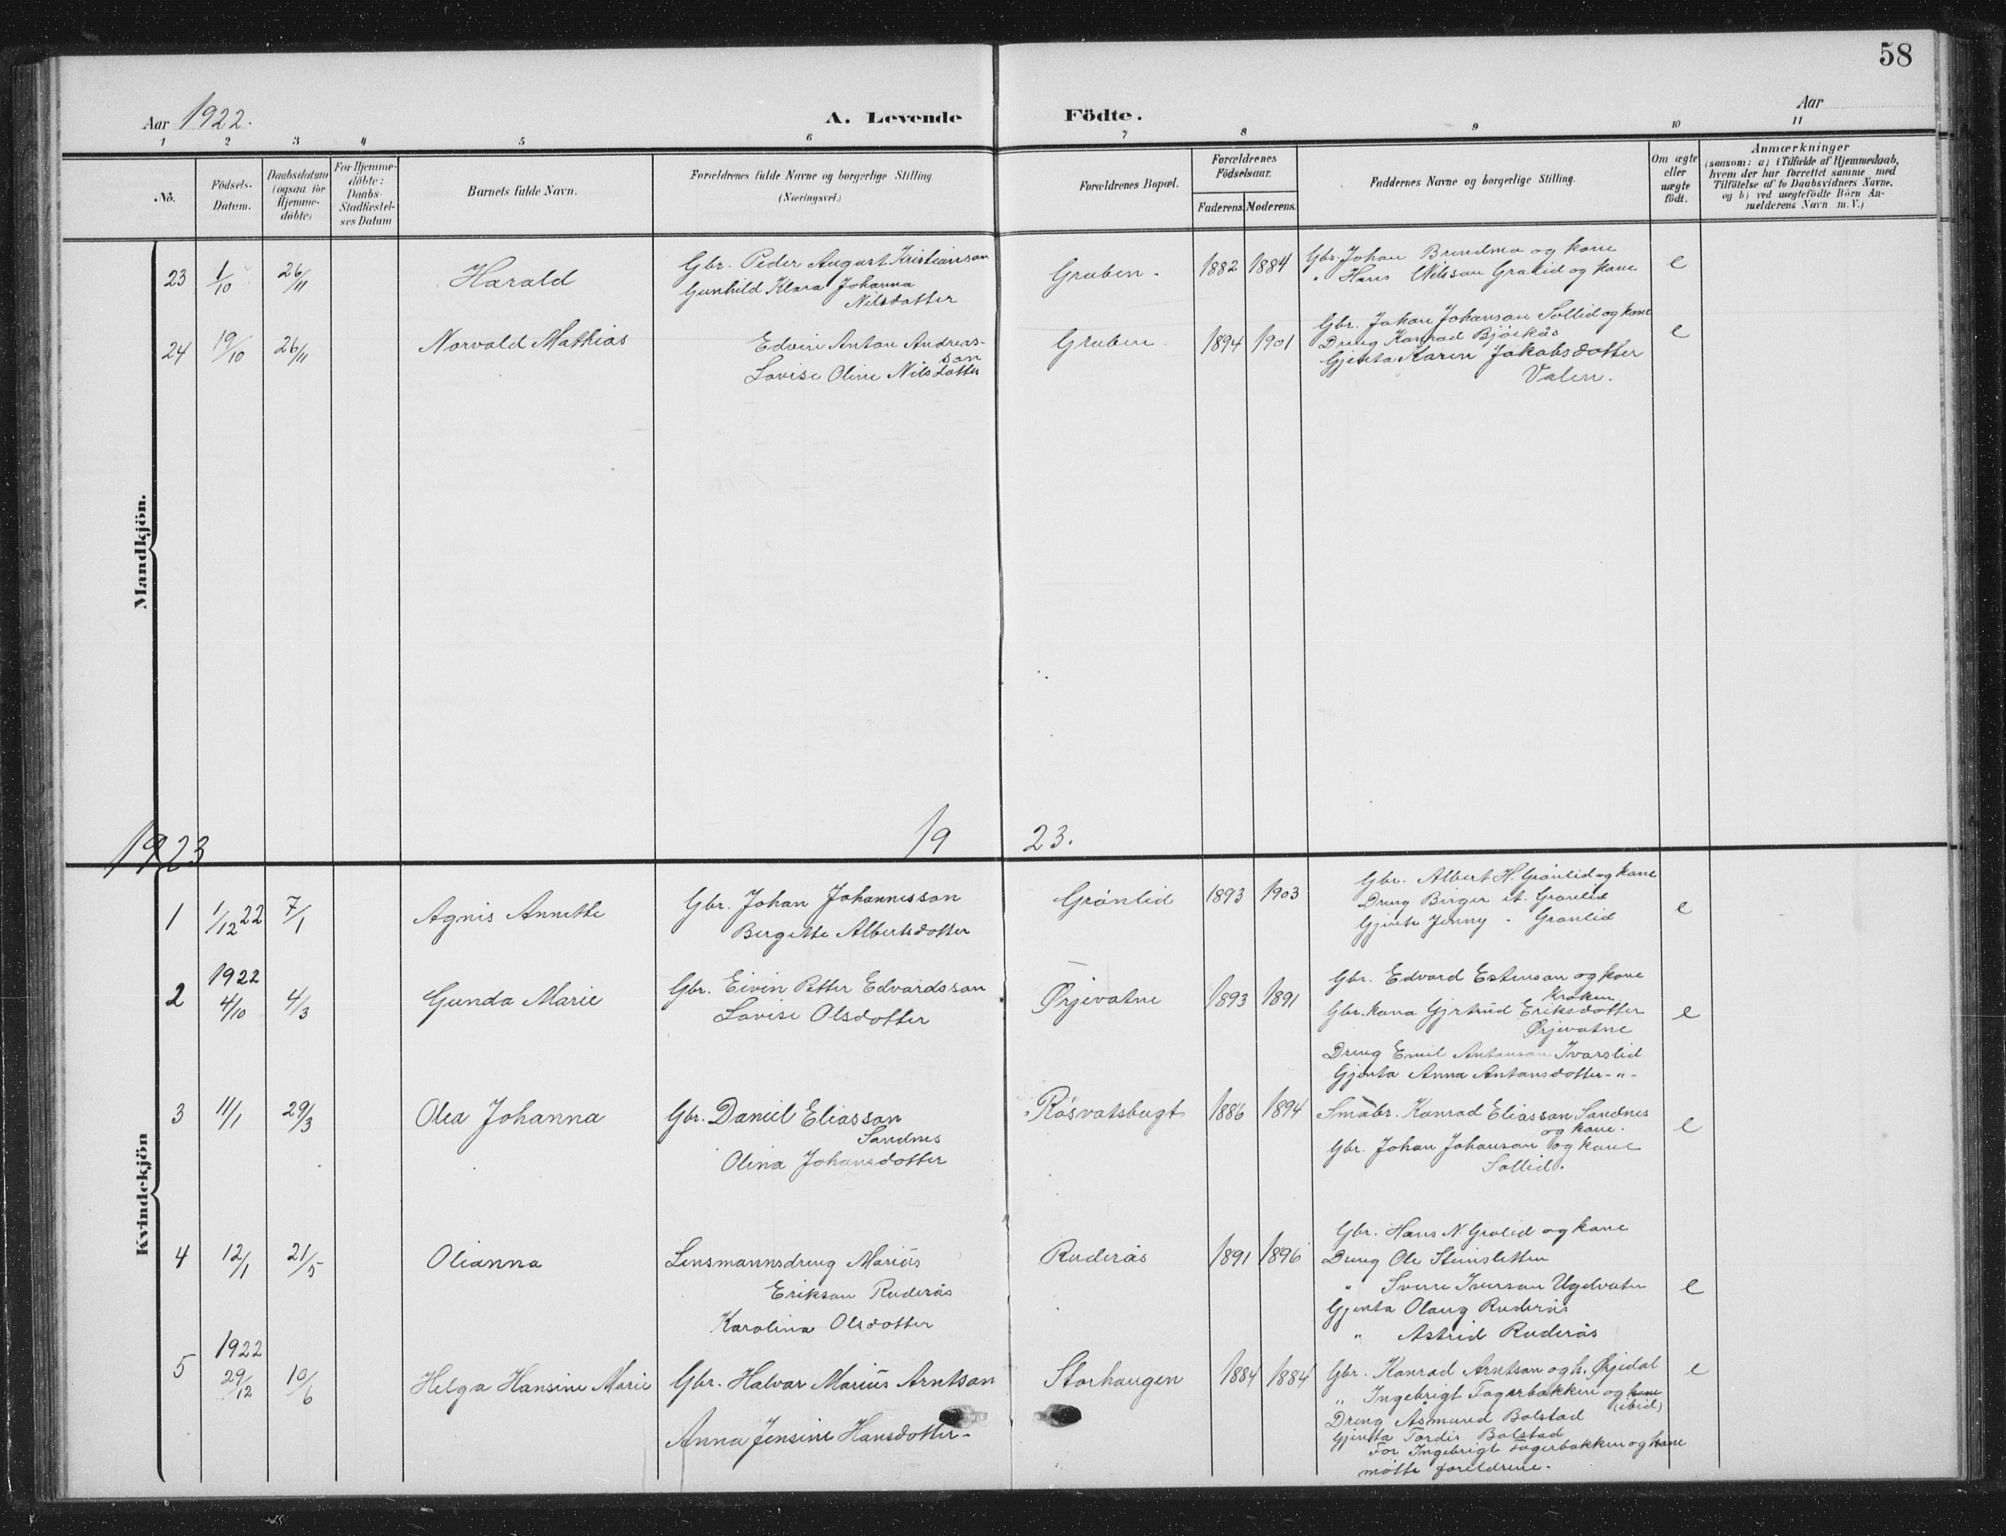 58
Aar 1922.
A. Levende Födte.
Aar
1 2 3 4 5 6 7 8 9 10 11
No.
Födsels-
Datum.
Daabsdatum
(ogsaa for
Hjemme-
döbte)
For Hjemme-
döbte:
Daabs-
Stadfæstel-
ses Datum
Barnets fulde Navn.
Forældrenes fulde Navne og borgerlige Stilling.
(Næringsvei.)
Forældrenes Bopæl.
Forældrenes
Födselsaar.
Faderens. Moderens.
Faddernes Navne og borgerlige Stilling.
Om ægte
eller
uægte
födt.
Anmærkninger
(saasom: a) i Tilfælde af Hjemmedaab,
hvem der har forrettet samme med
Tilföielse af to Daabsvidners Navne,
og b) ved uægtefödte Börn An-
melderens Navn m. V.)
Mandkjön.
23 1/10 26/11 Harald
Gbr. Peder August Kristianson
Gunhild Klara Johanna
Nilsdotter
Gruben. 1882 1884
Gbr. Johan Brendmo og kone
" Hans Nilsson Grølid og kone
e
24 19/10 26/11 Norvald Mathias
Edvin Anton Andreas-
son
Lovise Oline Nilsdotter
Gruben. 1894 1901
Gbr. Johan Johanson Sollid og kone
Dreng Konrad Bjørkås
Gjenta Karen Jakobsdotter
Valen.
e
1923 19 23.
Kvindekjön
1 1/12 22 7/1 Agnis Annette
Gbr. Johan Johannesson
Bergitte Albertsdotter
Grønlid 1893 1903
Gbr. Albert H. Grønlid og kone
Dreng Birger A. Grønlid
Gjenta Jenny - Grønlid
e
2 1922
4/10 4/3 Gunda Marie
Gbr. Eivin Petter Edvardsson
Lovise Olsdotter
Ørjevatne 1893 1891
Gbr. Edvard Estenson og kone
Kroken
Gbr. kona Gjertrud Eriksdotter
Ørjevatne
Dreng Emil Antonson Ivarslid
Gjenta Anna Antonsdotter -"-
e
3 11/1 29/3 Olea Johanna
Gbr. Daniel Eliasson
Sandnes
Olina Johansdotter
Røsvatsbugt 1886 1894
Småbr. Konrad Eliasson Sandnes
og kone.
Gbr. Johan Johanson og kone
Sollid.
e
4 12/1 21/5 Olianna
Lensmannsdreng Marius
Erikson Ruderås
Karolina Olsdotter
Ruderås 1891 1896
Gbr. Hans N. Grølid og kone
Dreng Ole Steinsletten
" Sverre Iverson Ugelvatn
Gjenta Olaug Ruderås
" Astrid Ruderås
e
5 1922
29/12 10/6 Helga Hansine Marie
Gbr. Halvar Marius Arntson
Anna Jensine Hansdotter -
Storhaugen 1884 1884
Gbr. Konrad Arntson og h. Ørjedal
" Ingebrigt Fagerbakken og kone
(ibid)
Dreng Åsmund Bolstad
Gjenta Tordis Bolstad
For Ingebrigt Fagerbakken og kone
møtte foreldrene.
e